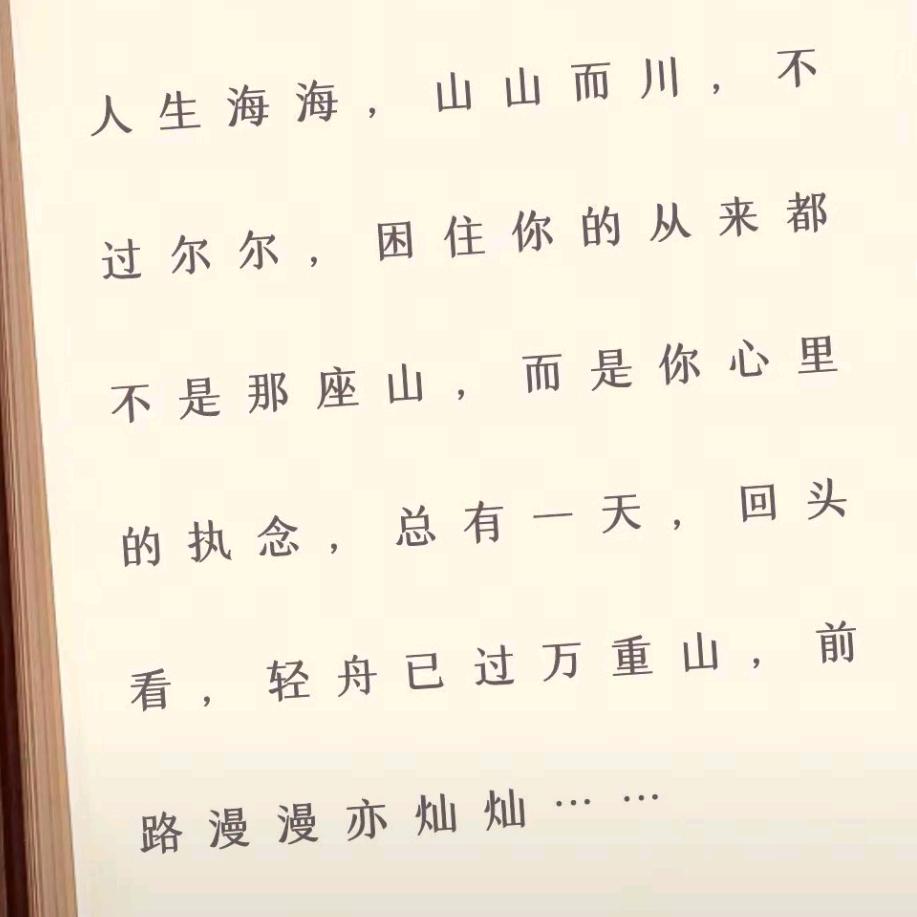 人生海海，山山而川，不
过尔尔，困住你的从来都
不是那座山，而是你心里
的执念，总有一天，回头
看，轻舟已过万重山，前
路漫漫亦灿灿……